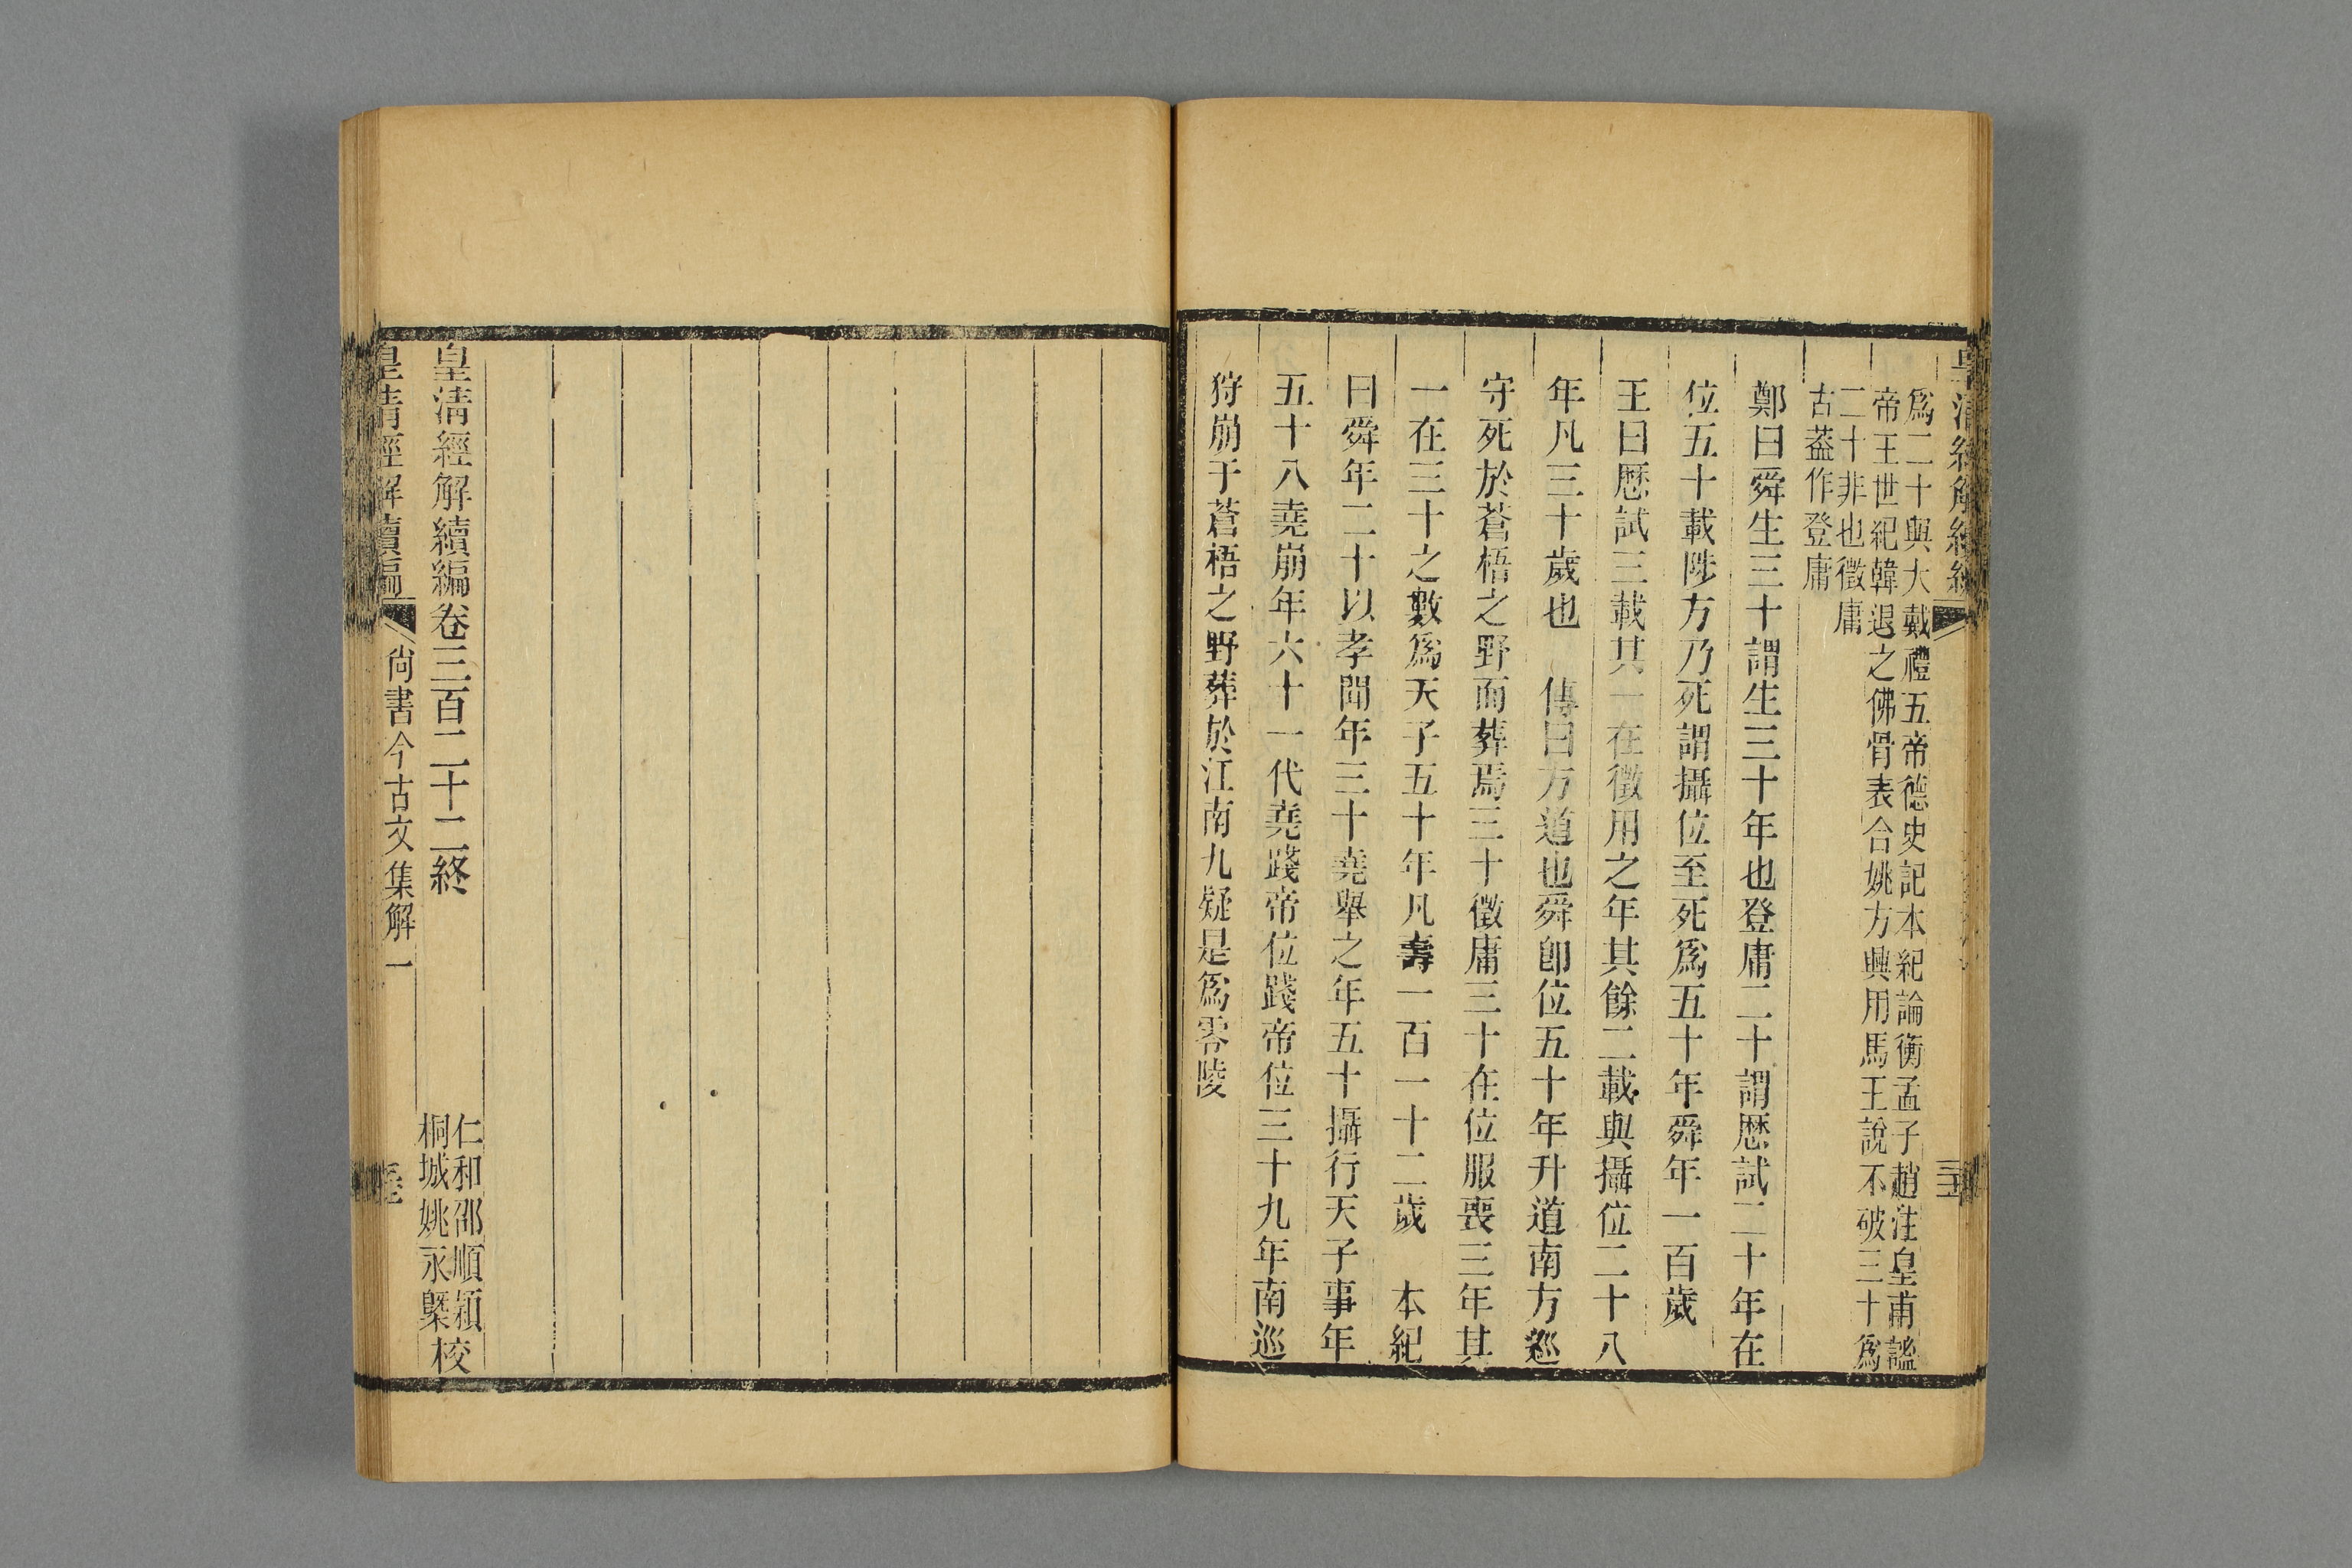 爲二十與大戴禮五帝德史記本紀論衡孟子趙注皇甫謐
帝王世紀韓退之佛骨表合姚方興用馬王說不破三十爲
二十非也徵庸
古葢作登庸
鄭曰舜生三十謂生三十年也登庸二十謂歴試二十年在
位五十載陟方乃死謂攝位至死爲五十年舜年一百歲
王曰歴試三載其一在徵用之年其餘二載與攝位二十八
年凡三十歲也　傳曰方道也舜卽位五十年升道南方巡
守死於蒼梧之野而葬焉三十徵庸三十在位服喪三年其
一在三十之數爲天子五十年凡壽一百一十二歲　本紀
曰舜年二十以孝聞年三十堯舉之年五十攝行天子事年
五十八堯崩年六十一代堯踐帝位踐帝位三十九年南巡
狩崩于蒼梧之野葬於江南九疑是爲零陵
皇清經解續編卷三百二十二終
仁和邵順穎
桐城姚永㮣校
皇清經解續編　尚書今古文集解一